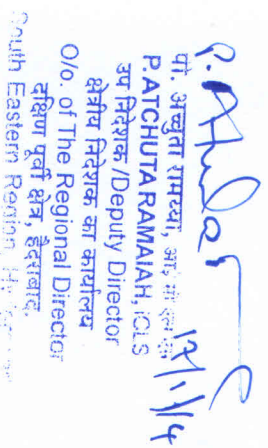 17/1/14
पी. अच्युता रामय्या, आई सी एल एस
P.ATCHUTA RAMAIAH, ICLS
उप निदेशक /Deputy Director
क्षेत्रीय निदेशक का कार्यालय
O/o. of The Regional Director
दक्षिण पूर्वी क्षेत्र, हैदराबाद,
South Eastern Region,